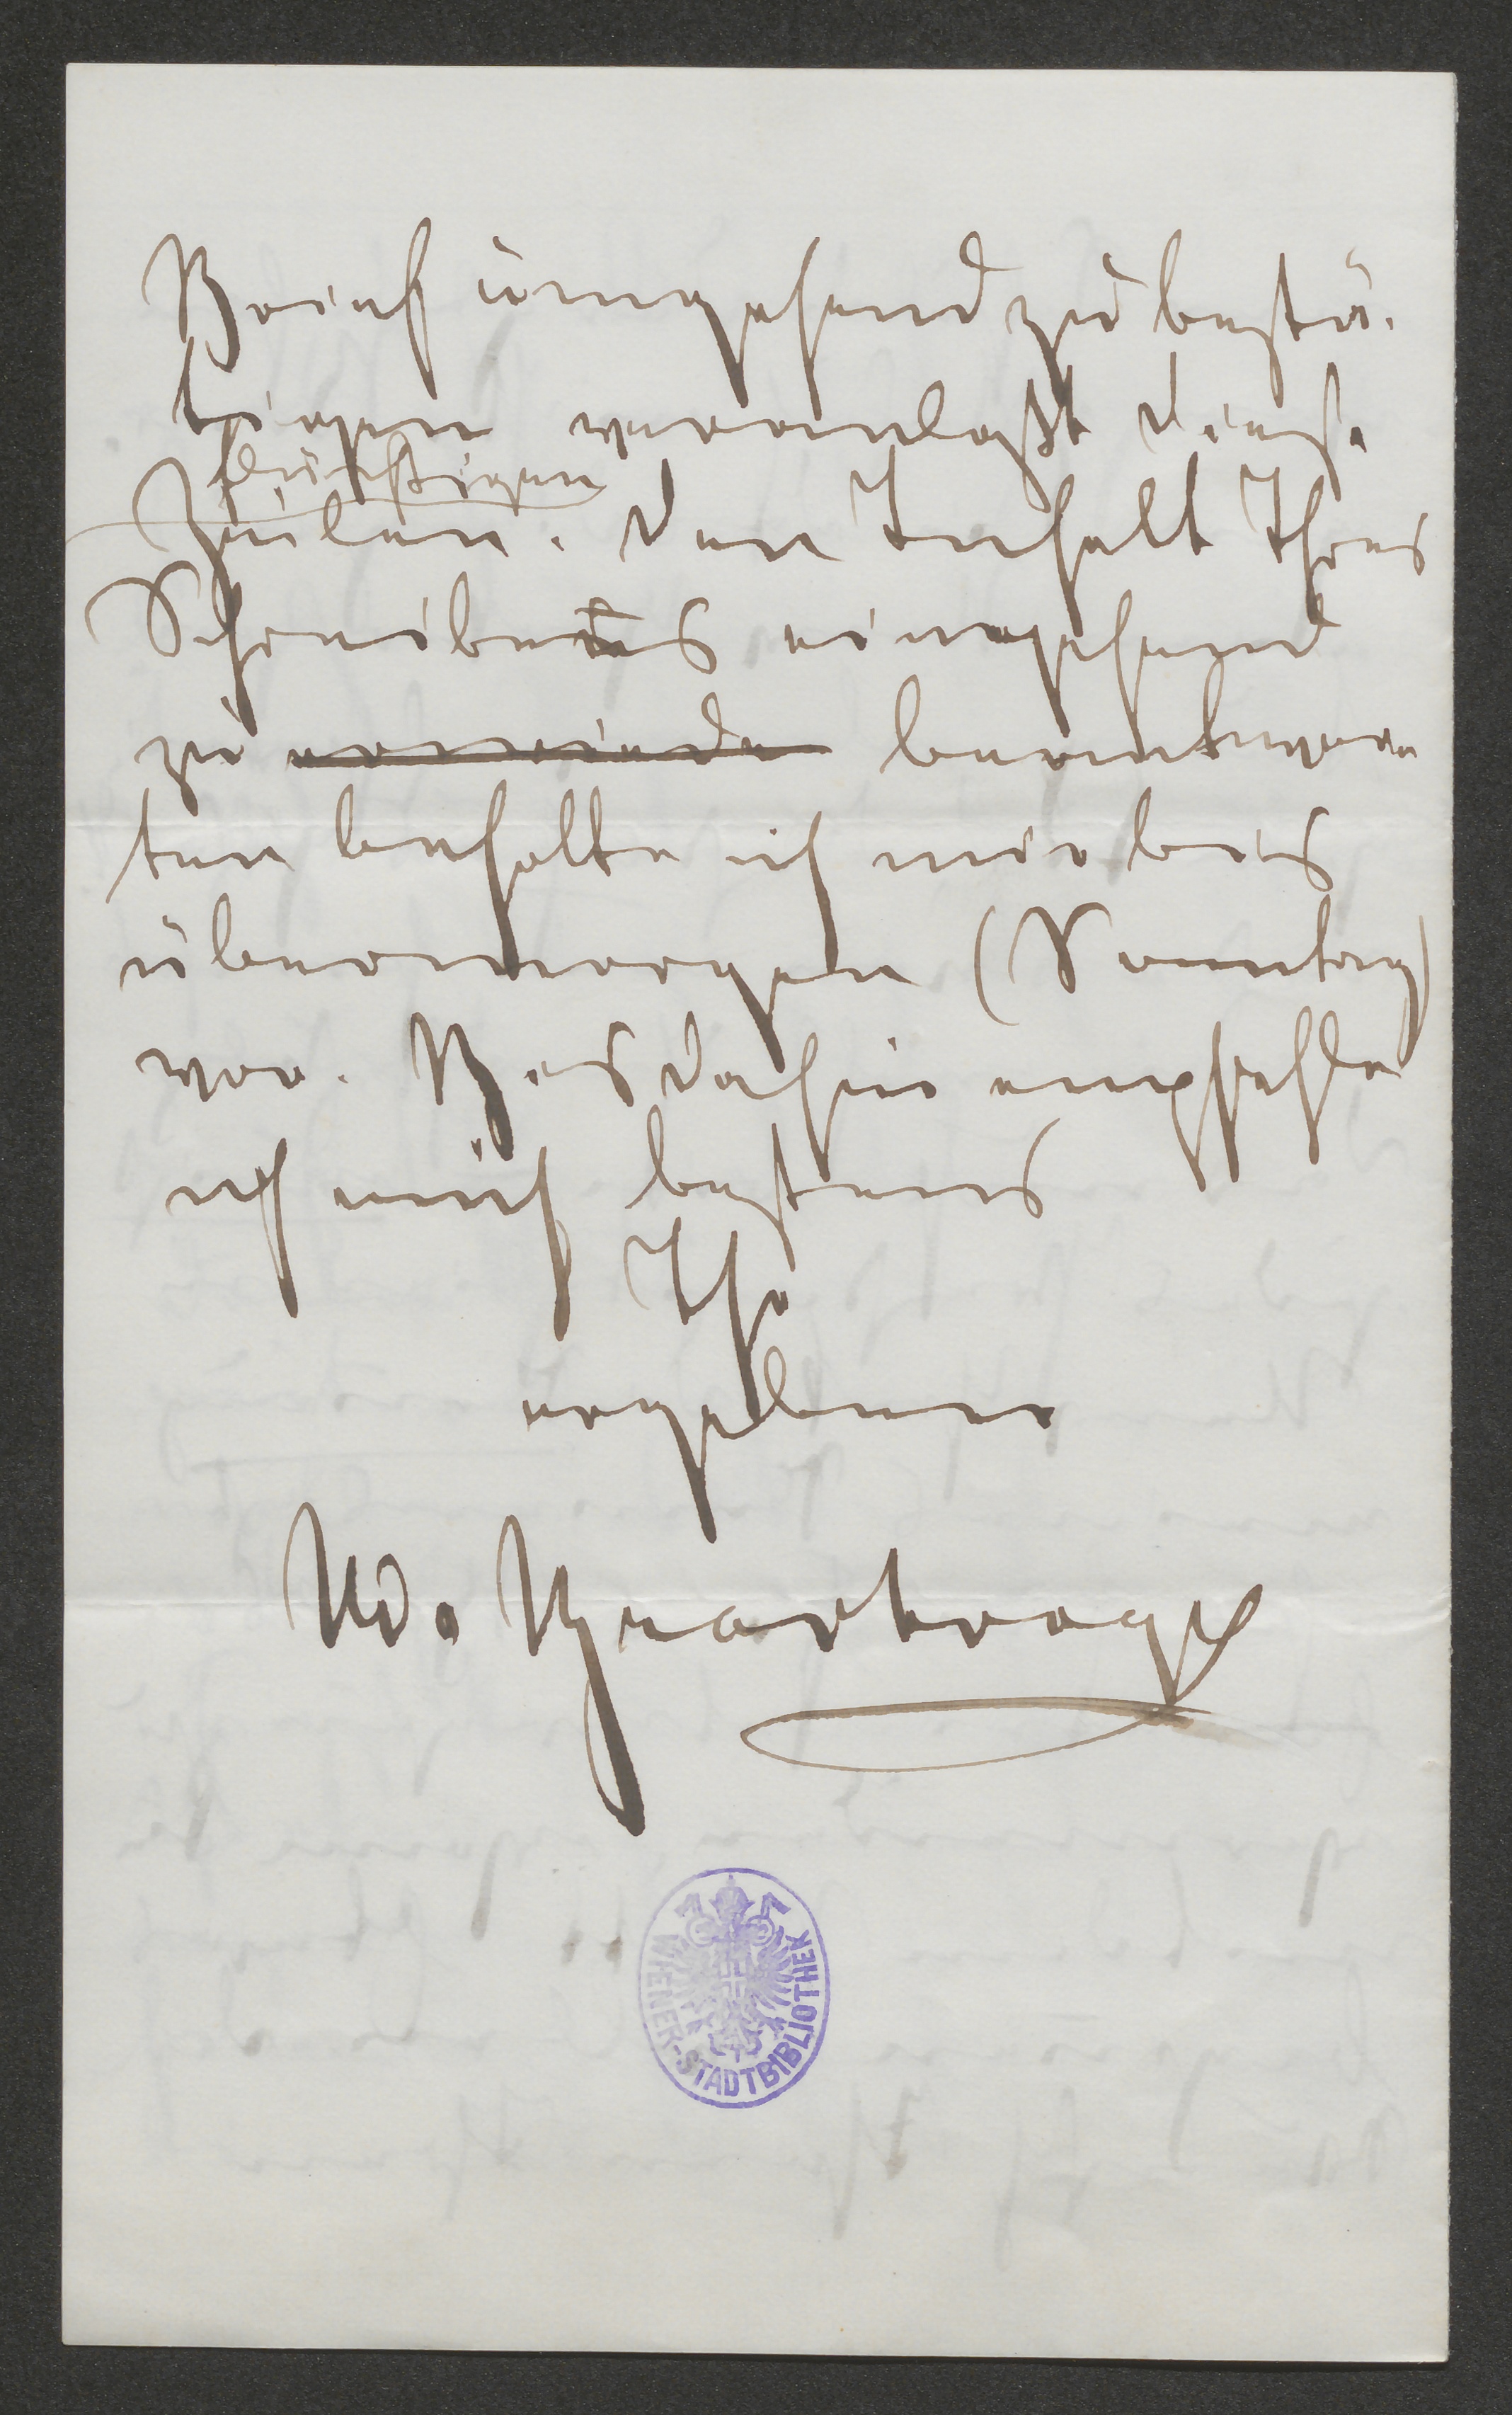 Brief umgehend zu bestä-
tigen veranlaßt diese
Zeilen. Den Inhalt Ihres
Schreibens eingehend
zu beantwor-
ten behalte ich mir bis
übermorgen (Sonntag)
vor. Bis dahin empfehle
ich mich bestens
Ihr
ergebener
WIENER-STADTBIBLIOTHEK